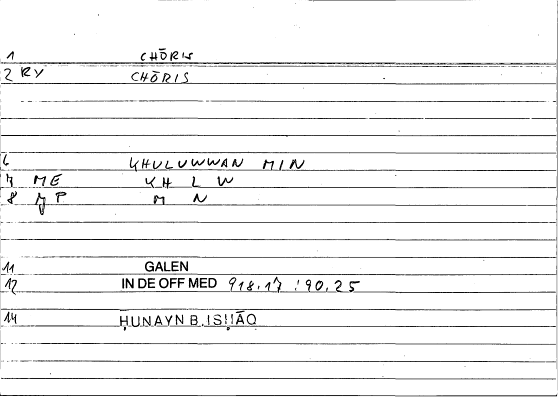 1 CHŌRIS
2 RY CHŌRIS
6 KHULUWWAN MIN
7 ME KH L W
8 M N
11 GALEN
12 IN DE OFF MED 918.17 : 90.25
14 ḤUNAYN B. ISḤĀQ